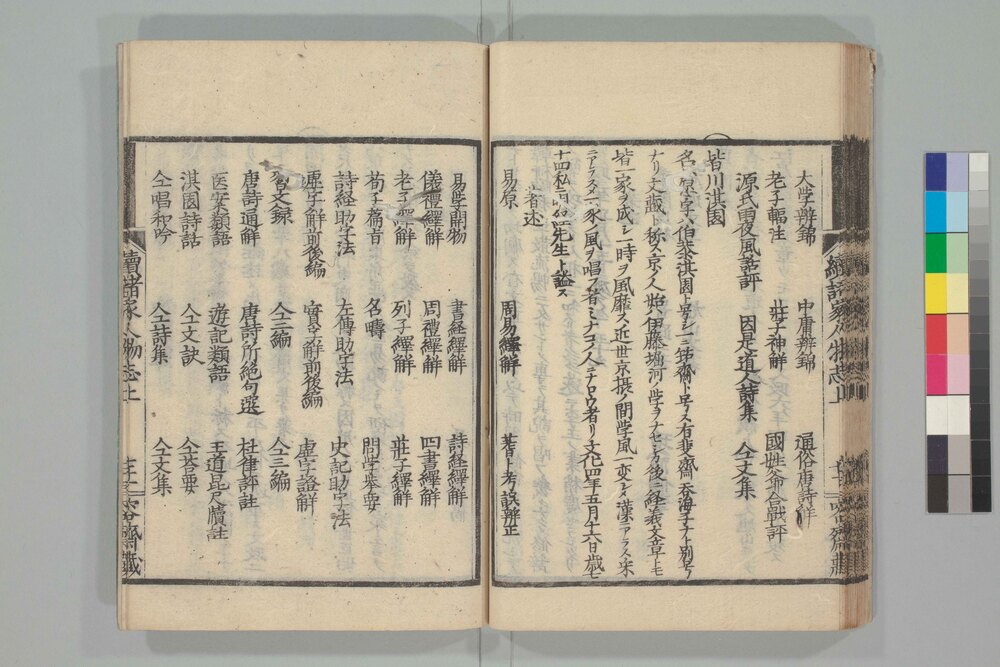 大学辨錦　中庸辨錦　通俗唐詩解
老子輻注　莊子神解　國姓爺合戰評
源氏雨夜風話評　因是道人詩集　仝文集
皆川淇園
名ハ原字ハ伯恭淇園ト号シ一ニ節齋ト号ス有斐齋呑海子ナト別号
ナリ文蔵ト称ス京ノ人始伊藤塘河ニ学ヲナセシカ後ニ経義文章トモ
皆一家ヲ成シ一時ヲ風靡ス近世京摂ノ間学風一変シタ漢ニアラス宋
ニアラス一家ノ風ヲ唱フ者ミナコノ人ニナロウ者ナリ文化四年五月十六日歳七
十四私ニ弘道先生ト謚ス
著述
易原　周易繹解　蓍卜考誤辨正
易学開物　書経繹解　詩経繹解
儀禮繹解　周禮繹解　四書繹解
老子繹解　列子繹解　莊子繹解
荀子痛音　名疇　問学挙要
詩経助字法　左傳助字法　史記助字法
遷字解前後編　實字解前後編　虚字證解
習文録　仝二編　仝三編
唐詩通解　唐詩所絶句選　杜律評註
医案類語　遊記類語　王道昆尺牘註
淇園詩話　仝文訣　仝答要
仝唱和吟　仝詩集　仝文集
續諸家人物志上